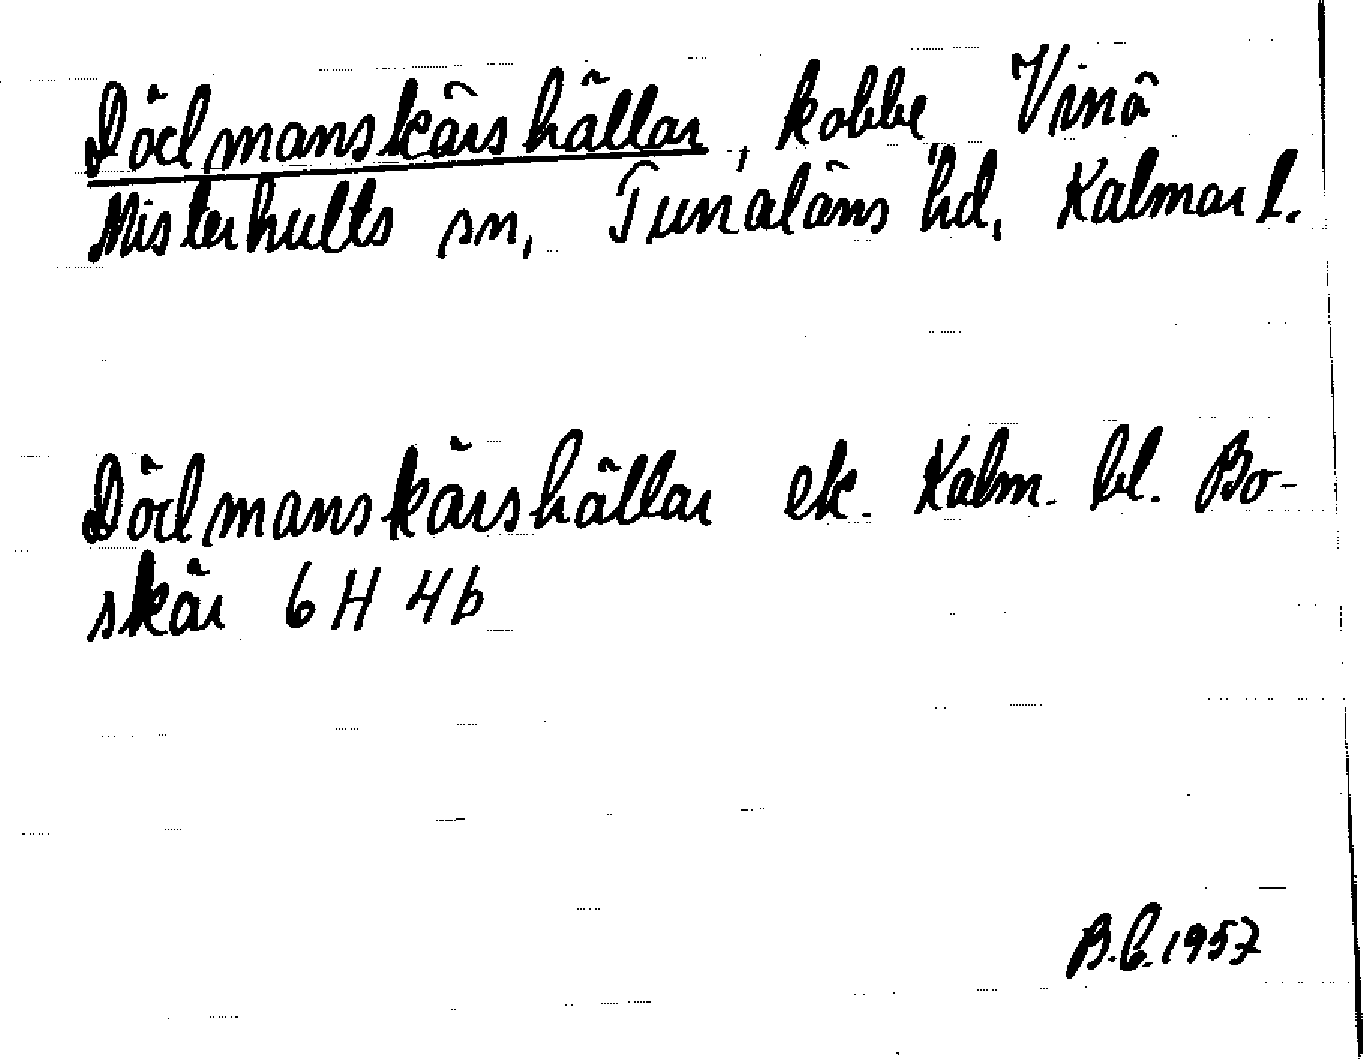 Dödmanskärshällar, kobbe Vinö
Misterhults sn, Tunaläns hd, Kalmar l.
Dödmanskärshällar ek. Kalm. bl. Bo-
skär 6H 4b
B.C.1957